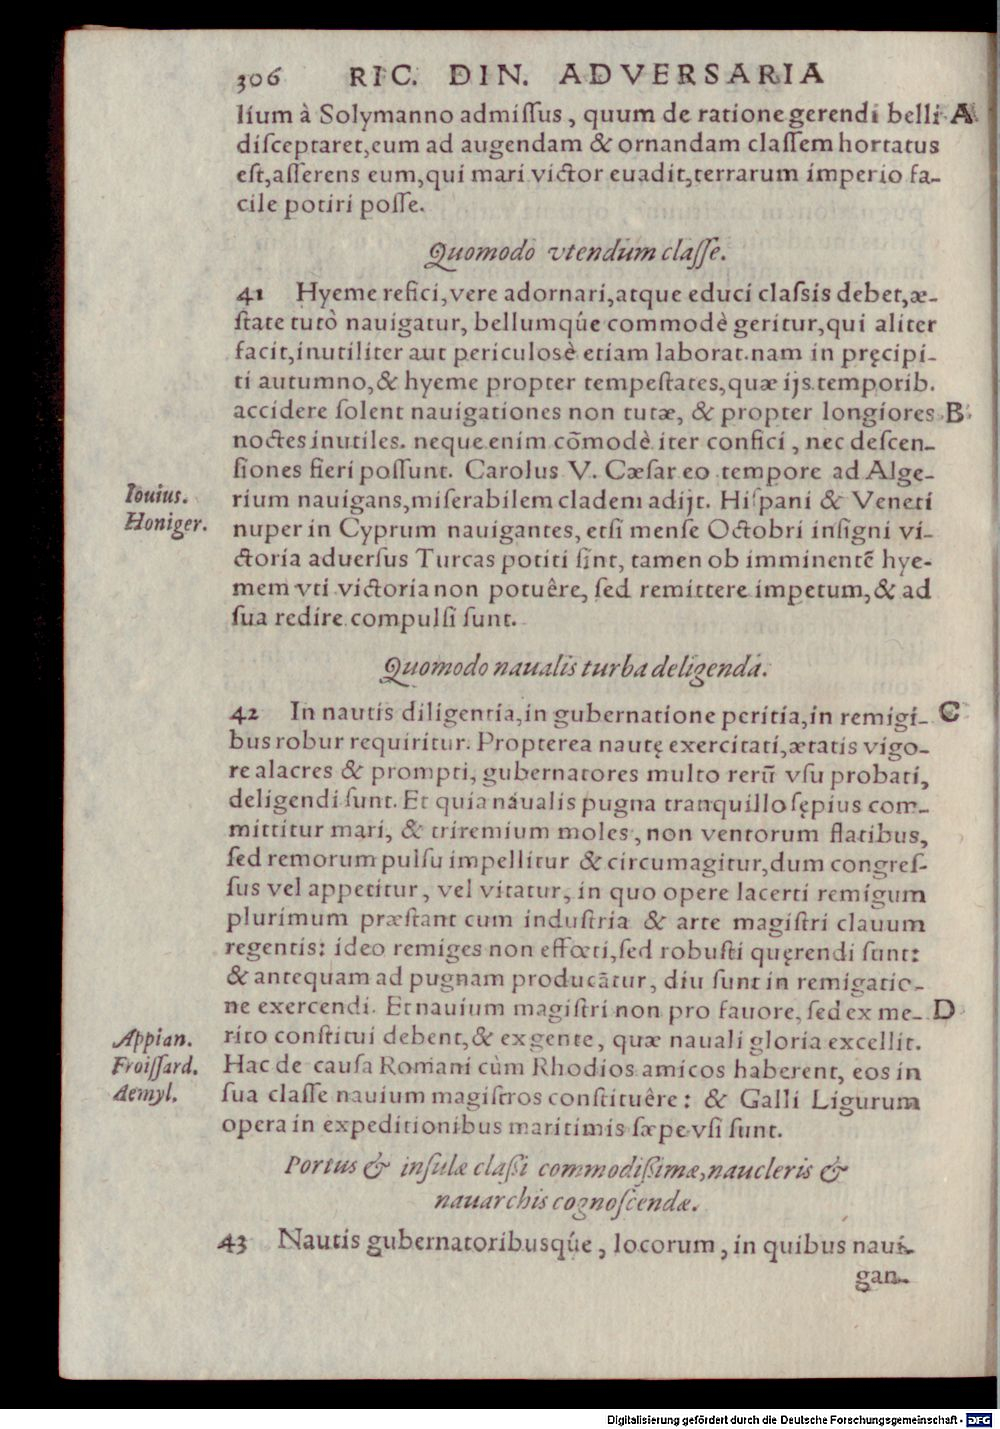 306 RIC. DIN. ADVERSARIA
lium à Solymanno admiſſus, quum de ratione gerendi belli A
diſceptaret, eum ad augendam & ornandam claſſem hortatus
eſt, aſſerens eum, qui mari victor euadit, terrarum imperio fa-
cile potiri poſſe.
Quomodo vtendum claſſe.
41 Hyeme refici, vere adornari, atque educi claſsis debet, æ-
ſtate tutò nauigatur, bellumq́ue commodè geritur, qui aliter
facit, inutiliter aut periculosè etiam laborat. nam in pręcipi-
ti autumno, & hyeme propter tempeſtates, quæ ijs temporib.
accidere ſolent nauigationes non tutæ, & propter longiores B
noctes inutiles. neque enim cõmodè iter confici, nec deſcen-
ſiones fieri poſſunt. Carolus V. Cæſar eo tempore ad Alge-
Iouius.
Honiger.
rium nauigans, miſerabilem cladem adijt. Hiſpani & Veneti
nuper in Cyprum nauigantes, etſi menſe Octobri inſigni vi-
ctoria aduerſus Turcas potiti ſint, tamen ob imminentẽ hye-
mem vti victoria non potuêre, ſed remittere impetum, & ad
ſua redire compulſi ſunt.
Quomodo naualis turba deligenda.
42 In nautis diligentia, in gubernatione peritia, in remigi- C
bus robur requiritur. Propterea nautę exercitati, ætatis vigo-
re alacres & prompti, gubernatores multo rerũ vſu probati,
deligendi ſunt. Et quia naualis pugna tranquillo ſępius com-
mittitur mari, & triremium moles, non ventorum flatibus,
ſed remorum pulſu impellitur & circumagitur, dum congreſ-
ſus vel appetitur, vel vitatur, in quo opere lacerti remigum
plurimum præſtant cum induſtria & arte magiſtri clauum
regentis: ideo remiges non effœti, ſed robuſti quęrendi ſunt:
& antequam ad pugnam producãtur, diu ſunt in remigatio-
ne exercendi. Et nauium magiſtri non pro fauore, ſed ex me- D
Appian.
Froiſſard.
Aemyl.
rito conſtitui debent, & ex gente, quæ nauali gloria excellit.
Hac de cauſa Romani cùm Rhodios amicos haberent, eos in
ſua claſſe nauium magiſtros conſtituêre: & Galli Ligurum
opera in expeditionibus maritimis ſæpe vſi ſunt.
Portus & inſulæ claßi commodißimæ, naucleris &
nauarchis cognoſcendæ.
43 Nautis gubernatoribusq́ue, locorum, in quibus naui-
gan-
Digitalisierung gefördert durch die Deutsche Forschungsgemeinschaft - DFG